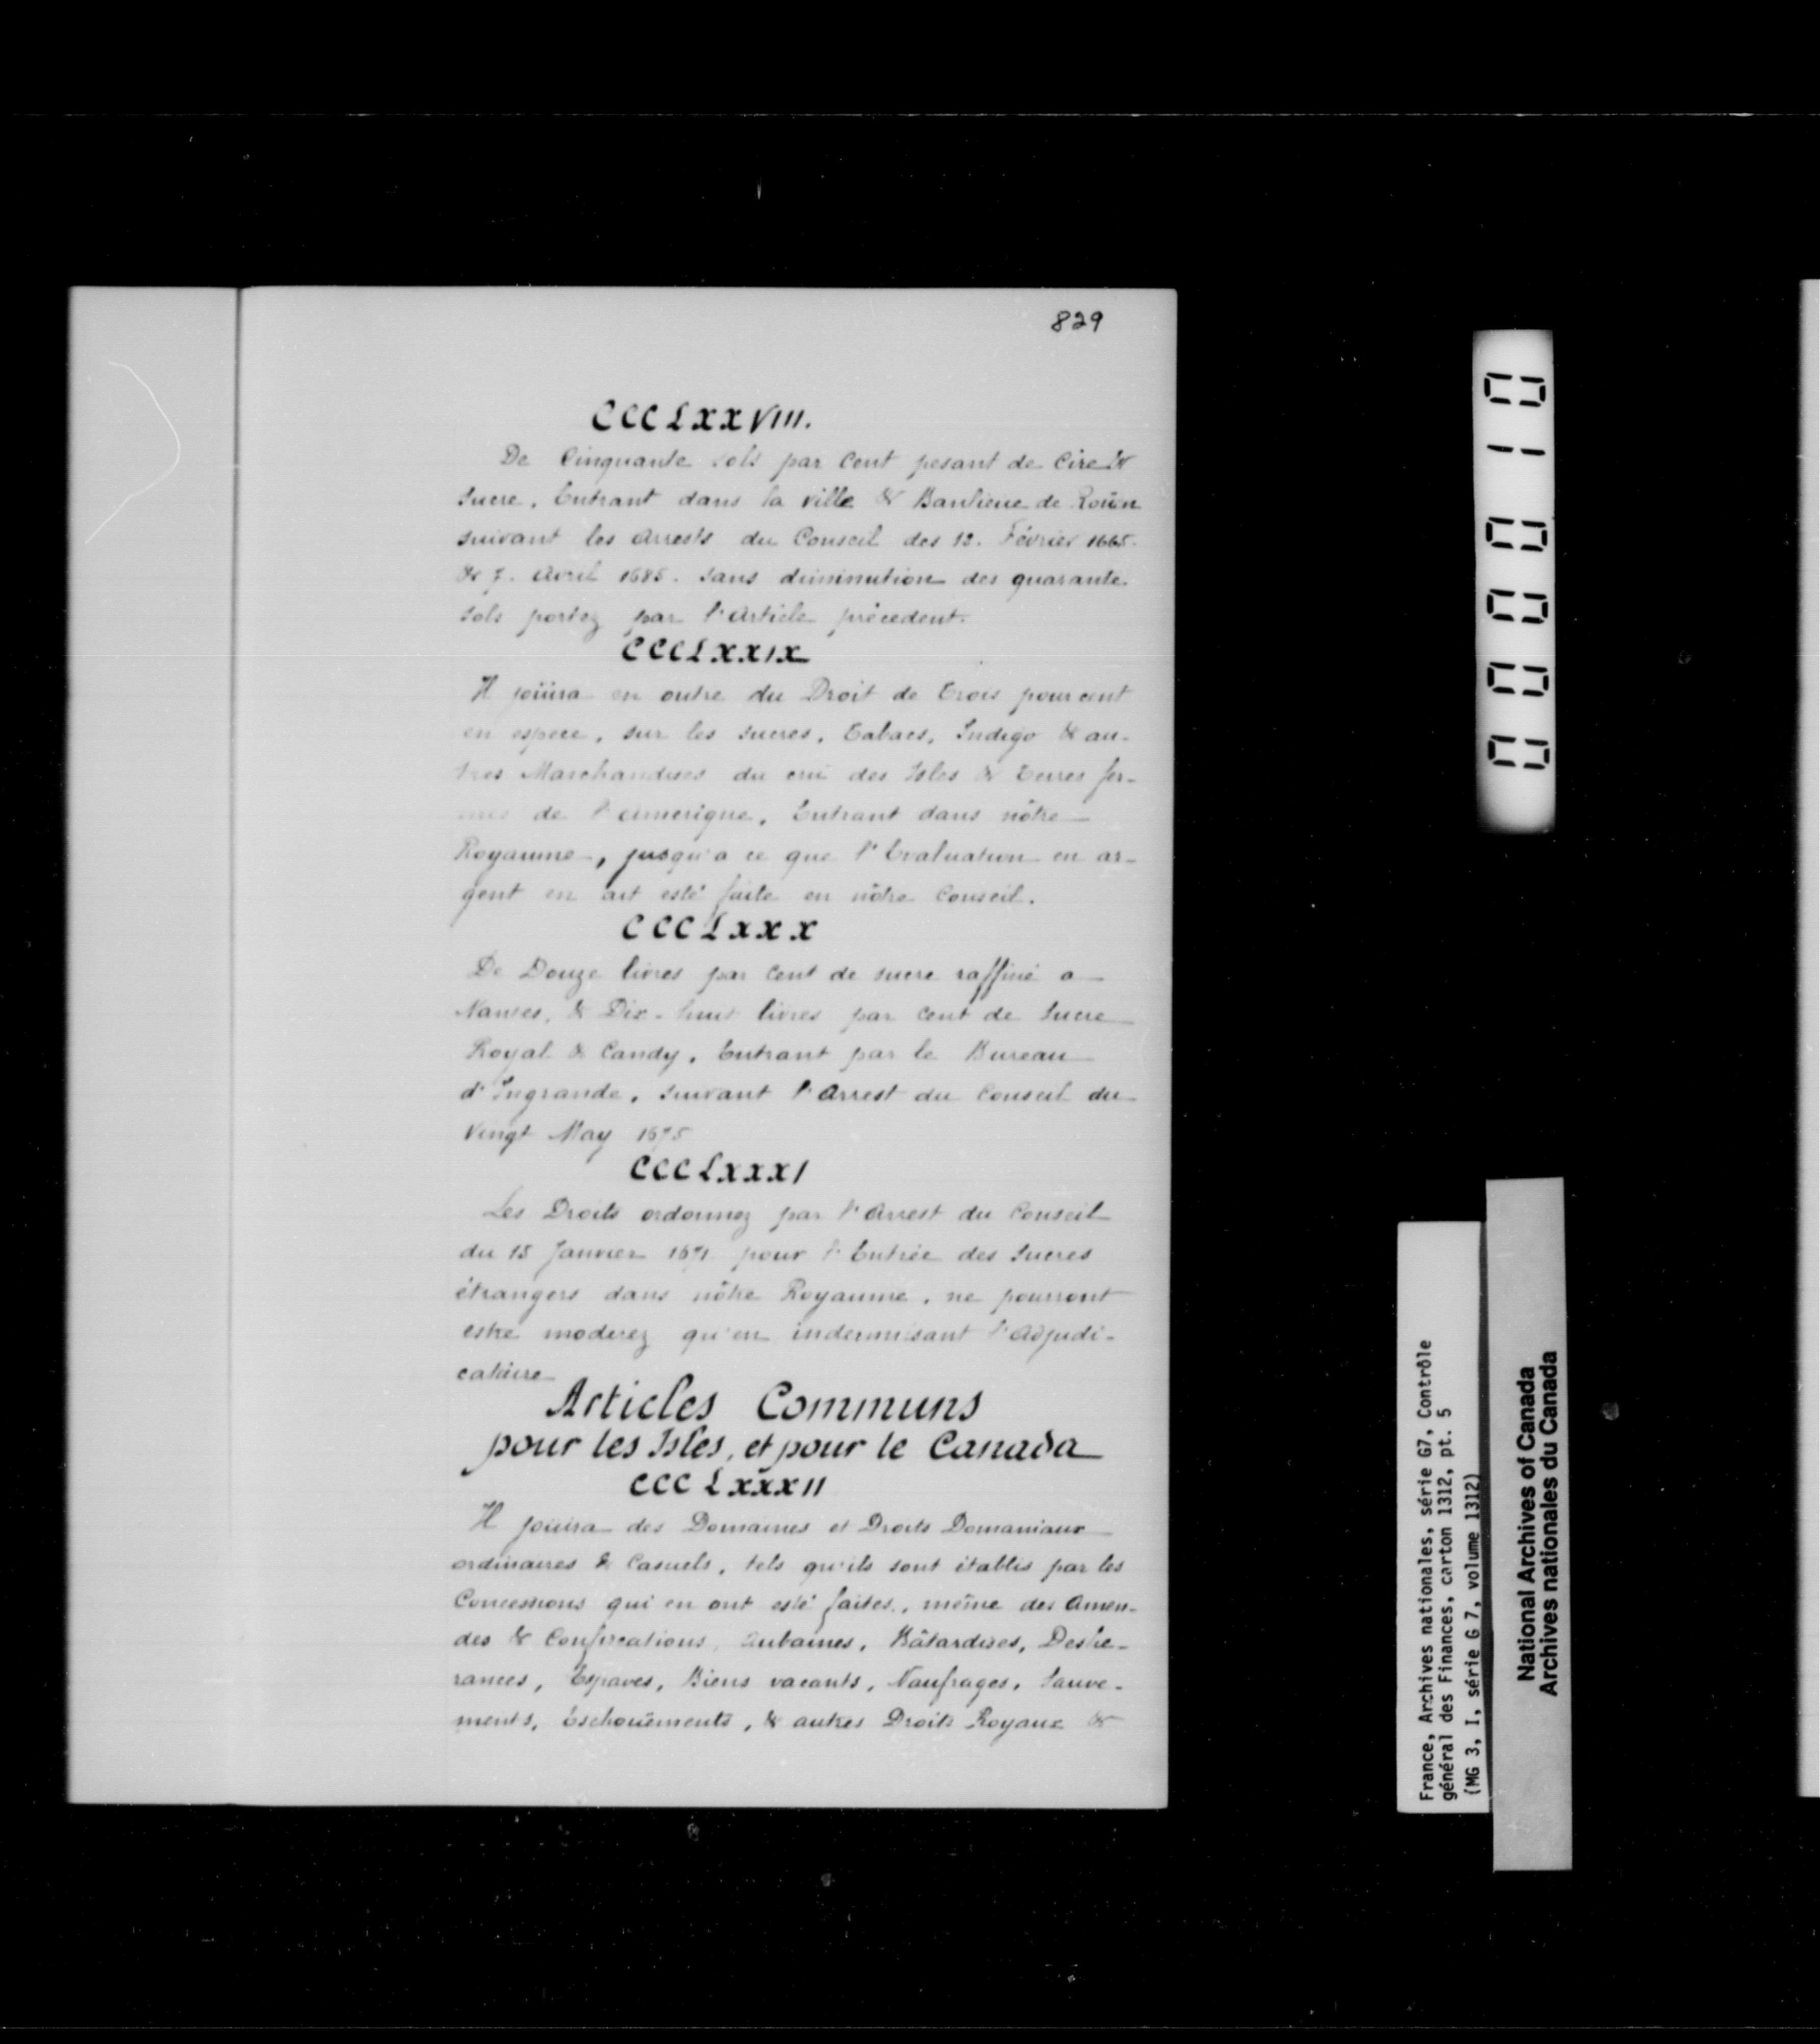 829
CCCLXXVIII.
De Cinquante sols par Cent pesant de Cire &
Sucre, Entrant dans la ville & Banlieue de Roüen
suivant les Arrests du Conseil des 12. Février 1665.
& 7. Avril 1685. sans diminution des quarante
sols portez par l'Article précedent.
CCCLXXIX
Il joüira en outre du Droit de Trois pour cent
en espece, sur les Sucres, Tabacs, Indigo & au-
tres Marchandises du crû des Isles & Terres fer-
mes de l'Amerique, Entrant dans nôtre
Royaume, jusqu'a ce que l'Evaluation en ar-
gent en ait esté faite en nôtre Conseil.
CCCLXXX
De Douze livres par Cent de sucre raffiné a
Nantes, & Dix-huit livres par Cent de Sucre
Royal & Candy, Entrant par le Bureau
d'Ingrande, suivant l'Arrest du Conseil du
Vingt May 1675
CCCLXXXI
Les Droits ordonnez par l'Arrest du Conseil
du 15 Janvier 1671 pour l'Entrée des Sucres
étrangers dans nôtre Royaume, ne pourront
estre moderez qu'en indemnisant l'Adjudi-
cataire
Articles Communs
pour les Isles, et pour le Canada
CCCLXXXII
Il joüira des Domaines et Droits Domaniaux
ordinaires & Casuels, tels qu'ils sont établis par les
Concessions qui en ont esté faites, même des Amen-
des & Confiscations, Aubaines, Bâtardises, Deshe-
rances, Espaves, Biens vacants, Naufrages, Sauve-
ments, Eschoüements, & autres Droits Royaux &
000010
France, Archives nationales, série G7, Contrôle
général des Finances, carton 1312, pt. 5
(MG 3, I, série G 7, volume 1312)
National Archives of Canada
Archives nationales du Canada